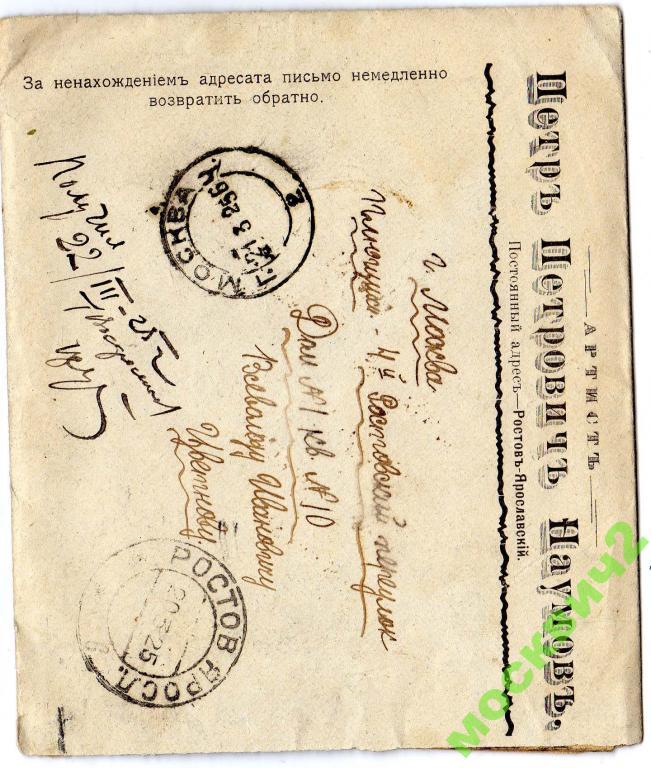 АРТИСТЪ
Петръ Петровичъ Наумовъ.
Постоянный адресъ—Ростовъ-Ярославскій.
За ненахожденіемъ адресата письмо немедленно
возвратить обратно.
г. Москва
4й Ростовский переулок
Дом №1 кв. №10
Всеволоду Ивановичу
Цветкову
Получил
22/III-25г
МОСКВА
21 3 25
РОСТОВ ЯРОСЛ.
20 3 25
москвич2